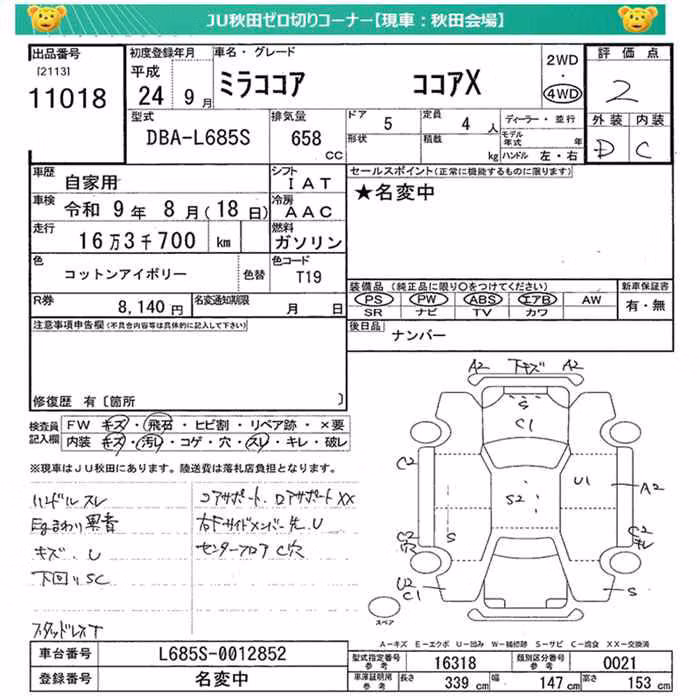 JU秋田ゼロ切りコーナー【現車：秋田会場】
出品番号
[2113]
11018
初度登録年月
平成
24 9月
車名・グレード
ミラココア ココアX
2WD
・
4WD
評価点
2
外装 内装
D C
型式
DBA-L685S
排気量
658
CC
ドア
5
定員
4 人
形状
積載
kg
ディーラー・並行
モデル年式 年
ハンドル 左・右
車歴
自家用
シフト
IAT
車検
令和 9年 8月(18日)
冷房
AAC
走行
16万3千700 km
燃料
ガソリン
色
コットンアイボリー
色替
色コード
T19
R券
8,140円
名変通知期限
月 日
セールスポイント(正常に機能するものに限ります)
★名変中
装備品 (純正品に限り○をつけてください)
PS PW ABS エアB AW
SR ナビ TV カワ
新車保証書
有・無
後日品
ナンバー
注意事項申告欄(不具合内容等は具体的に記入して下さい)
修復歴 有〔箇所 〕
検査員記入欄
FW キズ・飛石・ヒビ割・リペア跡・×要
内装 キズ・汚レ・コゲ・穴・スレ・キレ・破レ
※現車はJU秋田にあります。陸送費は落札店負担となります。
ハンドルスレ
Egまわり異音
キズ、U
下回りSC
スタッドレスT
コアサポート、ロアサポートXX
右Fサイドメンバー先U
センターフロアC穴
A2 下キズ A2
S
C1
C2
U1
A2
S2
C2
穴
S
C2
キレ
U2
C1
S
スペア
A-キズ E-エクボ U-凹み W-補修跡 S-サビ C-腐食 XX-交換済
車台番号
L685S-0012852
登録番号
名変中
型式指定番号
参考
16318
類別区分番号
参考
0021
車庫証明用
参考
長さ 339 cm
幅 147 cm
高さ 153 cm